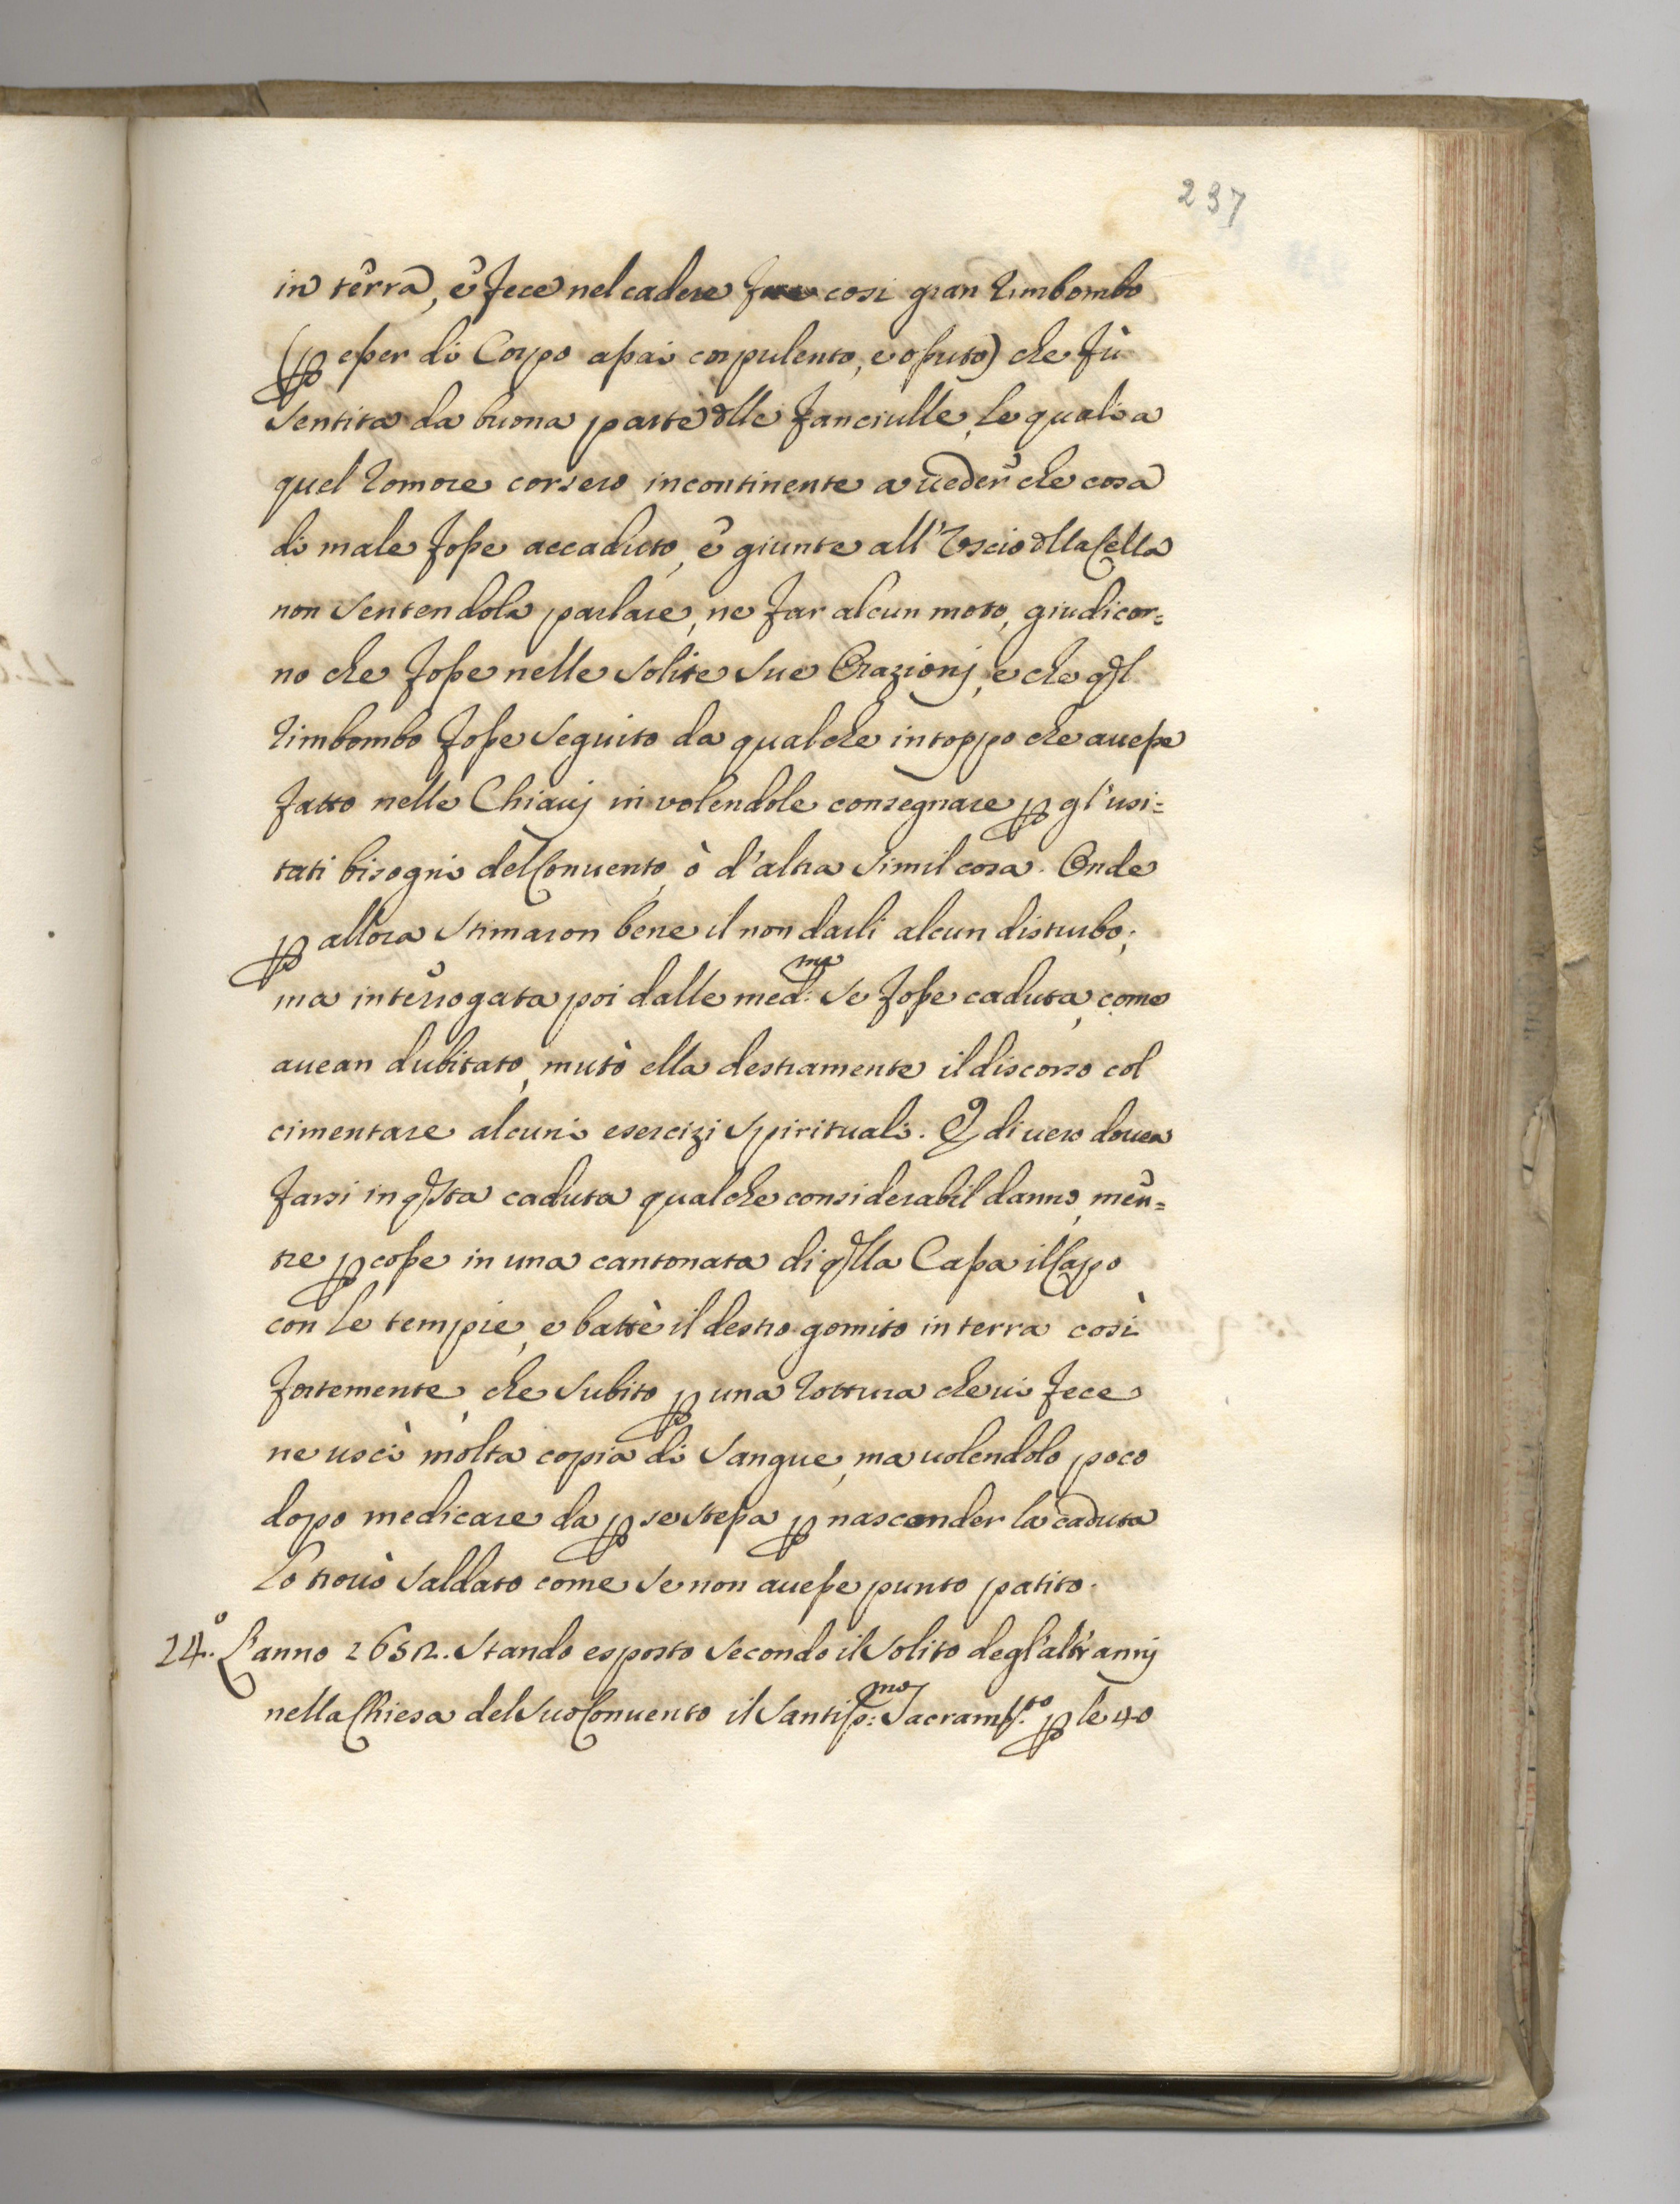 237
in terra, è fece nel cadere cosi gran rimbombo
(ꝑ esser di Corpo assai corpulento, e ossuto) che fù
sentita da buona parte dlle fanciulle, le quali a
quel romore corsero incontinente a ueder che cosa
di male fosse accaduto, è giunte all'Uscio dlla Cella
non sentendola parlare, ne far alcun moto, giudicor=
no che fosse nelle solite sue Orazionj, e che ql
rimbombo fosse seguito da qualche intoppo che auesse
fatto nelle Chiauj in volendole consegnare ꝑ gl'usi=
tati bisogni del Conuento, ò d'altra simil cosa. Onde
ꝑ allora stimaron bene il non darli alcun disturbo;
ma interrogata poi dalle med:me se fosse caduta, come
auean dubitato, mutò ella destramente il discorso col
cimentare alcuni esercizi spirituali. E di uero douea
farsi in qsta caduta qualche considerabil danno, men=
tre ꝑcosse in una cantonata di qlla Cassa il Capo
con le tempie, e battè il destro gomito in terra così
fortemente, che subito ꝑ una rottura che ui fece
ne uscì molta copia di sangue, ma uolendolo poco
dopo medicare da ꝑ se stessa ꝑ nasconder la caduta
lo trouò saldato come se non auesse punto patito.
24.º L'anno 1652. stando esposto secondo il solito degl'altr'annj
nella Chiesa del suo Conuento il Santiss:mo Sacram.to ꝑ le 40